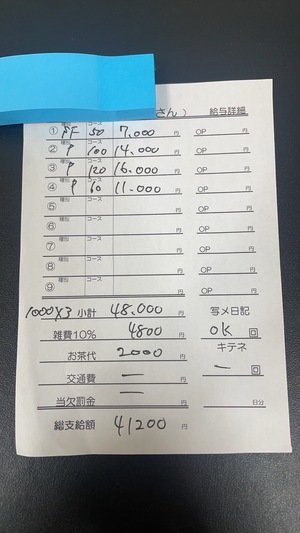 さん) 給与詳細
① 種別 FF コース 50 7,000 円 OP 円
② 種別 P コース 100 14,000 円 OP 円
③ 種別 P コース 120 16,000 円 OP 円
④ 種別 P コース 60 11,000 円 OP 円
⑤ 種別 コース 円 OP 円
⑥ 種別 コース 円 OP 円
⑦ 種別 コース 円 OP 円
⑧ 種別 コース 円 OP 円
⑨ 種別 コース 円 OP 円
1000×3 小計 48,000 円 写メ日記
雑費10% 4800 円 OK 回
お茶代 2000 円 キテネ
交通費 ー 円 ー 回
当欠罰金 ー 円 日分
総支給額 41200 円